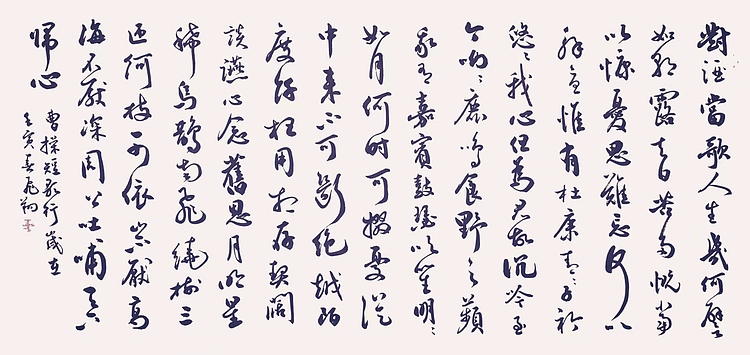 對酒當歌人生幾何譬
如朝露去日苦多慨當
以慷憂思難忘何以
解憂惟有杜康青〻子衿
悠〻我心但為君故沉吟至
今呦〻鹿鳴食野之蘋
我有嘉賓鼓瑟吹笙明〻
如月何時可掇憂從
中來不可斷絕越陌
度阡枉用相存契闊
談讌心念舊恩月明星
稀烏鵲南飛繞樹三
匝何枝可依山不厭高
海不厭深周公吐哺天下
歸心
曹操短歌行歲在
壬寅春飛翔